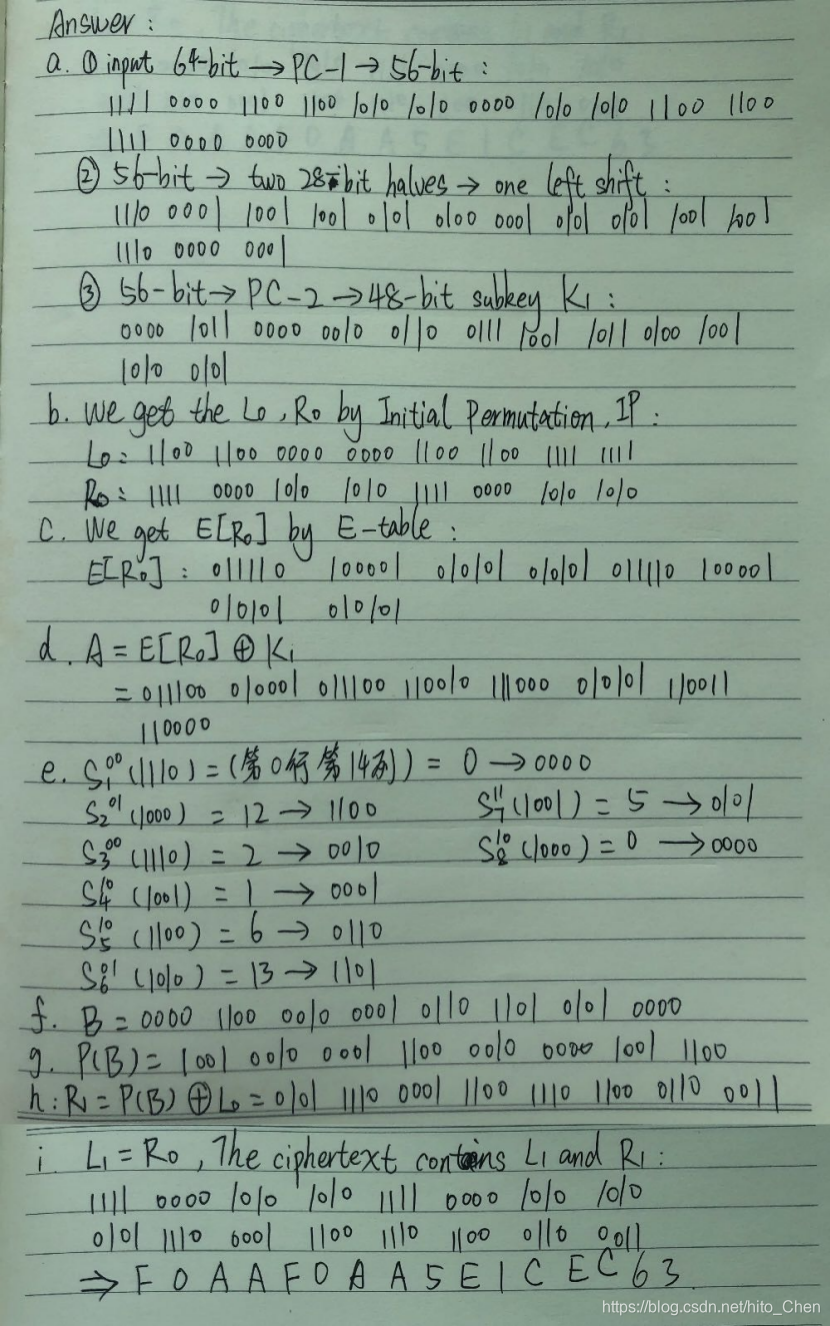 Answer :
a. ① input 64-bit → PC-1 → 56-bit :
1111 0000 1100 1100 1010 1010 0000 1010 1010 1100 1100
1111 0000 0000
② 56-bit → two 28-bit halves → one left shift :
1110 0001 1001 1001 0101 0100 0001 0101 0101 1001 1001
1110 0000 0001
③ 56-bit → PC-2 → 48-bit subkey K₁ :
0000 1011 0000 0010 0110 0111 1001 1011 0100 1001
1010 0101
b. We get the L₀, R₀ by Initial Permutation, IP :
L₀ = 1100 1100 0000 0000 1100 1100 1111 1111
R₀ = 1111 0000 1010 1010 1111 0000 1010 1010
c. We get E[R₀] by E-table :
E[R₀] : 011110 100001 010101 010101 011110 100001
010101 010101
d. A = E[R₀] ⊕ K₁
= 011100 010001 011100 110010 111000 010101 110011
110000
e. S₁⁰⁰(1110) = (第0行第14列) = 0 → 0000
S₂⁰¹(1000) = 12 → 1100 S₇¹¹(1001) = 5 → 0101
S₃⁰⁰(1110) = 2 → 0010 S₈¹⁰(1000) = 0 → 0000
S₄¹⁰(1001) = 1 → 0001
S₅¹⁰(1100) = 6 → 0110
S₆⁰¹(1010) = 13 → 1101
f. B = 0000 1100 0010 0001 0110 1101 0101 0000
g. P(B) = 1001 0010 0001 1100 0010 0000 1001 1100
h : R₁ = P(B) ⊕ L₀ = 0101 1110 0001 1100 1110 1100 0110 0011
i. L₁ = R₀, The ciphertext contains L₁ and R₁ :
1111 0000 1010 1010 1111 0000 1010 1010
0101 1110 0001 1100 1110 1100 0110 0011
⇒ F 0 A A F 0 A A 5 E 1 C E C 6 3
https://blog.csdn.net/hito_Chen